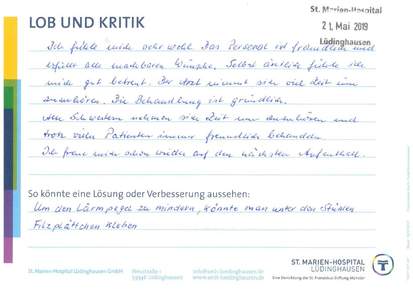 St. Marien-Hospital
21. Mai 2019
Lüdinghausen
LOB UND KRITIK
Ich fühle mich sehr wohl. Das Personal ist freundlich und
erfüllt alle machbaren Wünsche. Selbst ärztlich fühle ich
mich gut betreut. Der Arzt nimmt sich viel Zeit zum
zuhören. Die Behandlung ist gründlich.
Den Schwestern nehmen sich Zeit zum zuhören und
trotz vielen Patienten immer freundlich behandeln
Ich freue mich schon wieder auf den nächsten Aufenthalt.
So könnte eine Lösung oder Verbesserung aussehen:
Um den Lärmpegel zu mindern, könnte man unter das Stühlen
Filzplättchen kleben
St. Marien-Hospital Lüdinghausen GmbH
Neustraße 1
59348 Lüdinghausen
info@smh-luedinghausen.de
www.smh-luedinghausen.de
ST. MARIEN-HOSPITAL
LÜDINGHAUSEN
Eine Einrichtung der St. Franziskus-Stiftung Münster